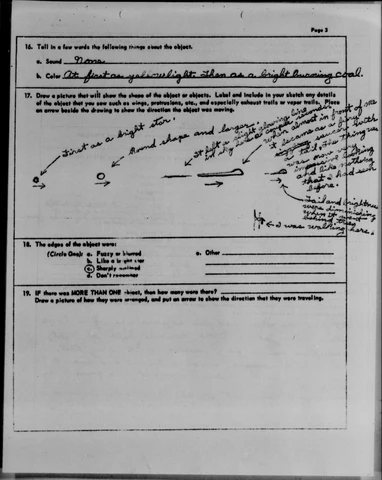 Page 3
16. Tell in a few words the following things about the object.
a. Sound None
b. Color At first as yellow light then as a bright burning coal.
17. Draw a picture that will show the shape of the object or objects. Label and include in your sketch any details
of the object that you saw such as wings, protrusions, etc., and especially exhaust trails or vapor trails. Place
an arrow beside the drawing to show the direction the object was moving.
First as a bright star.
Round shape and larger.
It left a bright glowing line
in sky
when almost in front of me
it became as a
with
a tail. the thing
was
and like nothing
that I had seen
before.
Tail and brightness
were diminishing
when it went
behind trees
I was walking here.
18. The edges of the object were:
(Circle One): a. Fuzzy or blurred
b. Like a bright star
c. Sharply outlined
d. Don't remember
e. Other
19. IF there was MORE THAN ONE object, then how many were there?
Draw a picture of how they were arranged, and put an arrow to show the direction that they were traveling.